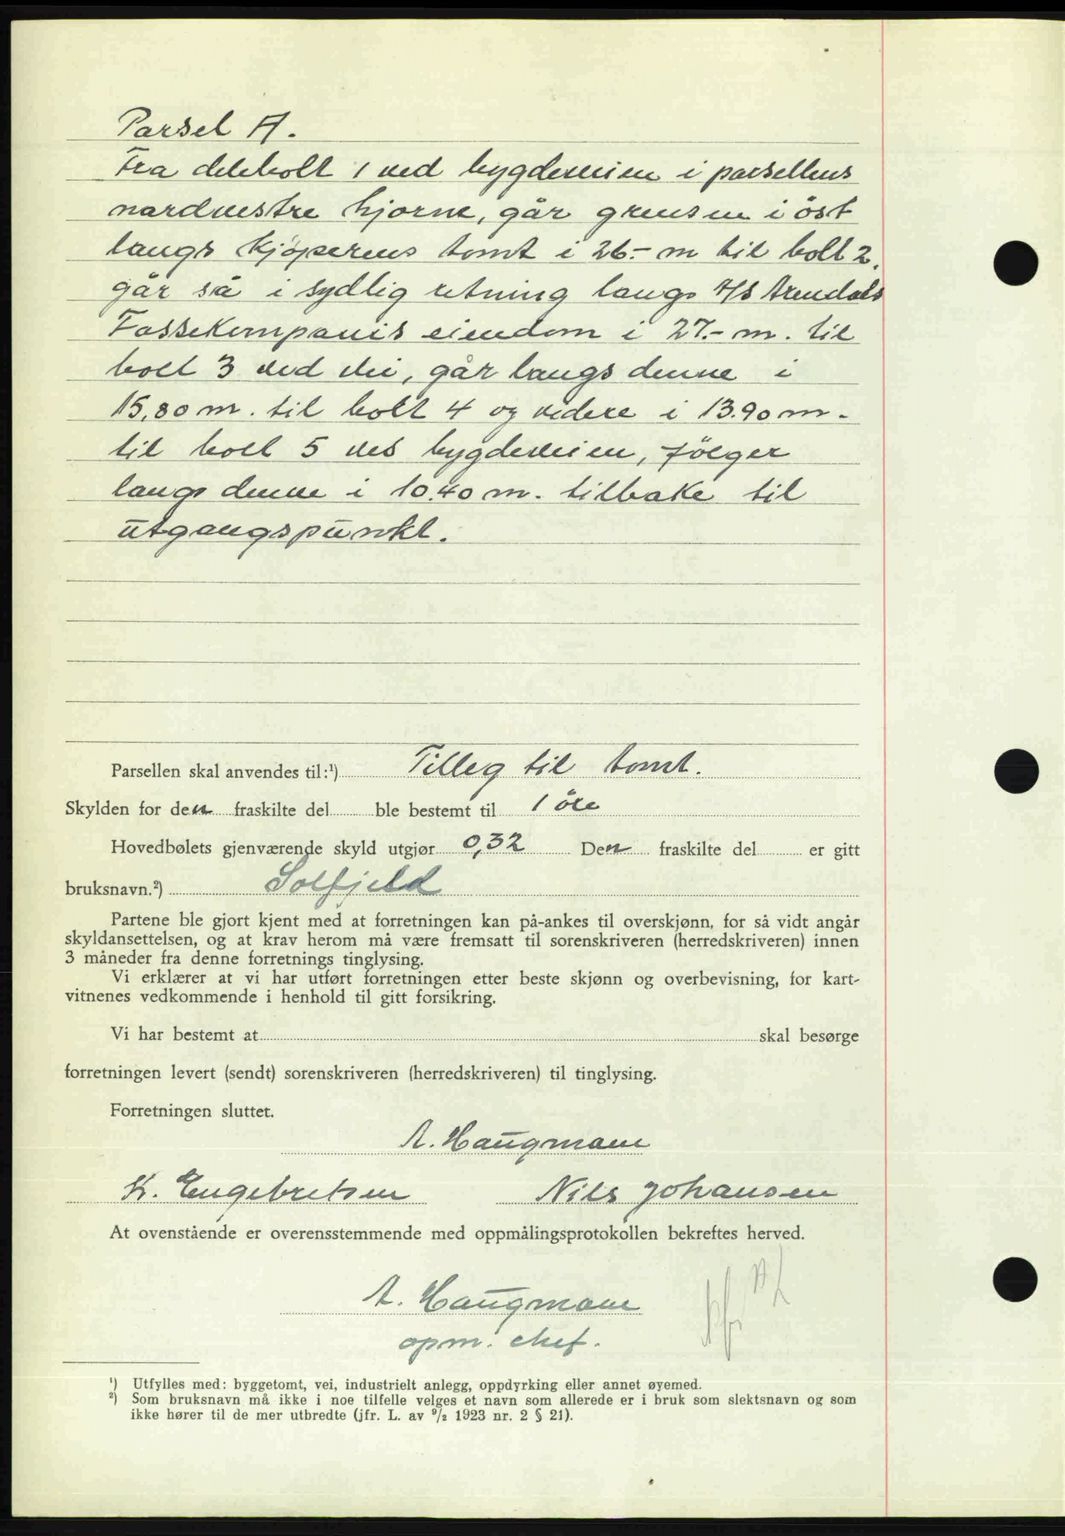 Parsel A.
Fra delebolt 1 ved bygdeveien i parsellens
nordvestre hjørne, går grensen i öst
langs kjöperens tomt i 26.- m til bolt 2.
går så i sydlig retning langs A/S Arendals
Fossekompanis eiendom i 27.- m. til
bolt 3 ved vei, går langs denne i
15,80 m. til bolt 4 og videre i 13.90 m.
til bolt 5 ved bygdeveien, fölger
langs denne i 10.40 m. tilbake til
utgangspunkt.
Parsellen skal anvendes til:¹) Tilleg til tomt.
Skylden for den fraskilte del ble bestemt til 1 öre
Hovedbølets gjenværende skyld utgjør 0,32 Den fraskilte del er gitt
bruksnavn.²) Solfjeld
Partene ble gjort kjent med at forretningen kan på-ankes til overskjønn, for så vidt angår
skyldansettelsen, og at krav herom må være fremsatt til sorenskriveren (herredskriveren) innen
3 måneder fra denne forretnings tinglysing.
Vi erklærer at vi har utført forretningen etter beste skjønn og overbevisning, for kart-
vitnenes vedkommende i henhold til gitt forsikring.
Vi har bestemt at skal besørge
forretningen levert (sendt) sorenskriveren (herredskriveren) til tinglysing.
Forretningen sluttet.
A. Haugmann
K. Engebretsen Nils Johansen
At ovenstående er overensstemmende med oppmålingsprotokollen bekreftes herved.
A. Haugmann
opm. chef.
¹) Utfylles med: byggetomt, vei, industrielt anlegg, oppdyrking eller annet øyemed.
²) Som bruksnavn må ikke i noe tilfelle velges et navn som allerede er i bruk som slektsnavn og som
ikke hører til de mer utbredte (jfr. L. av 9/2 1923 nr. 2 § 21).